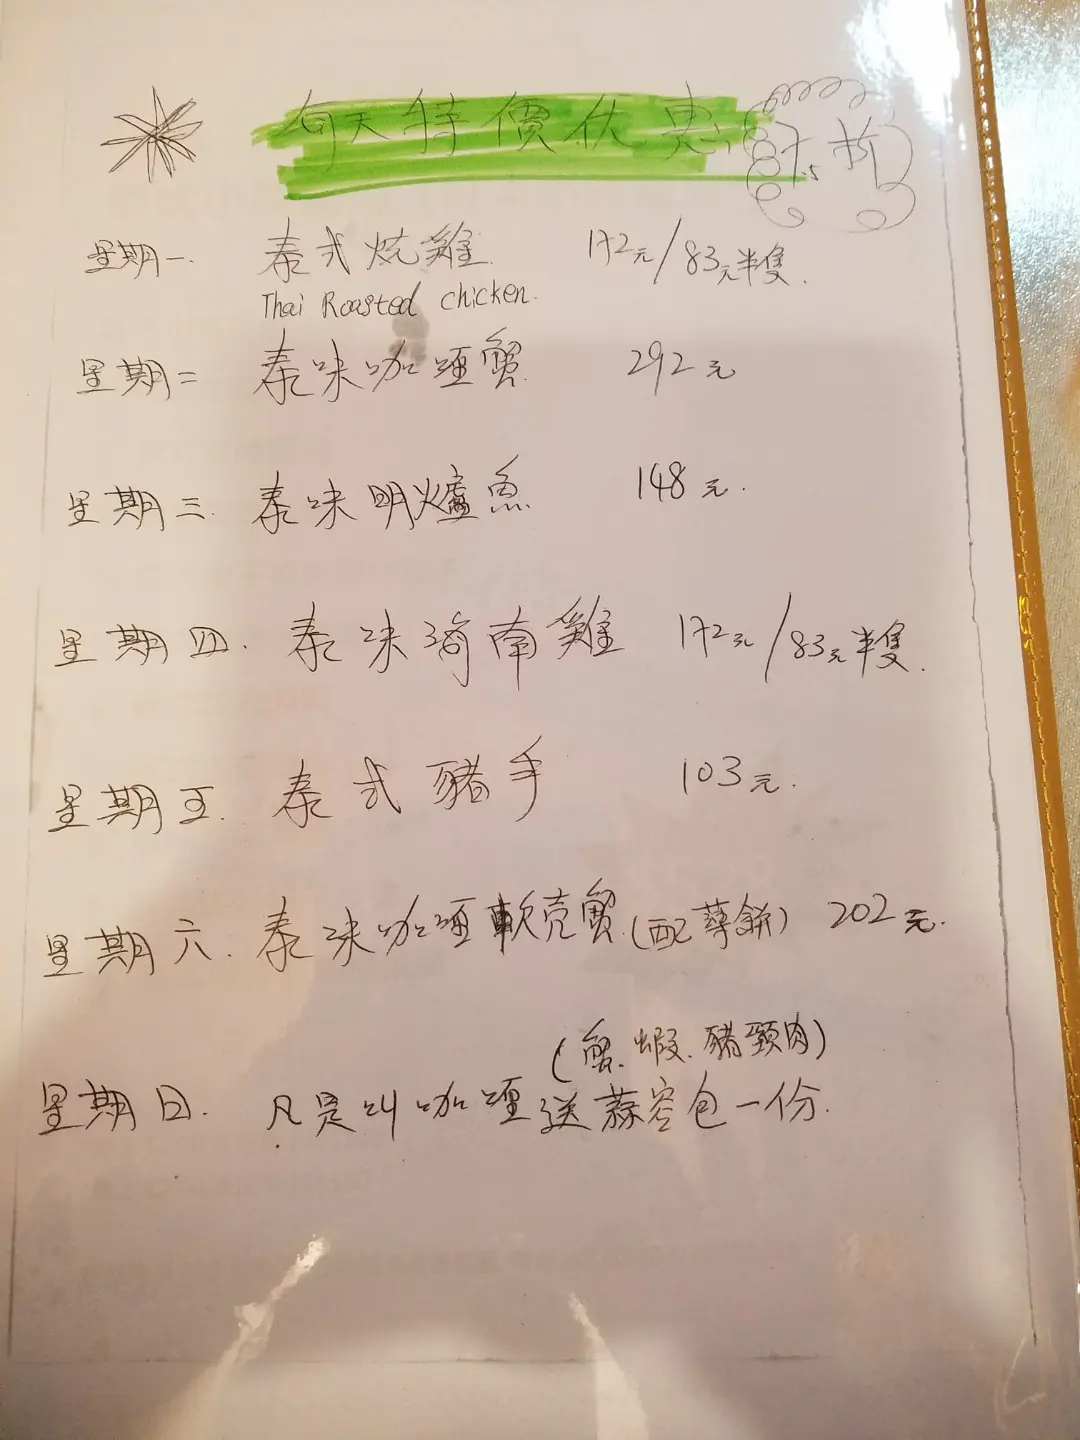 每天特價优惠 7.5折
星期一 泰式燒雞 192元/83元半隻
Thai Roasted chicken.
星期二 泰味咖喱蟹 292元
星期三 泰味明爐魚 148元
星期四 泰味海南雞 192元/83元半隻
星期五 泰式豬手 103元
星期六 泰味咖喱軟壳蟹(配薄餅) 202元
(蟹.蝦.豬頸肉)
星期日 凡是叫咖喱送蒜容包一份